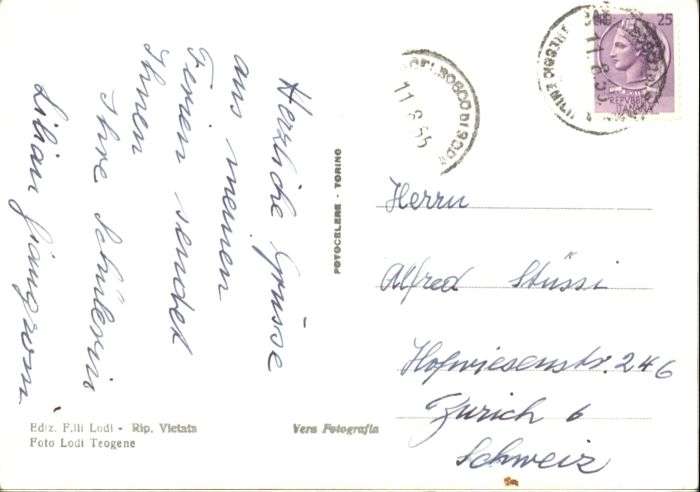 Herzliche Grüsse
aus meinen
Ferien sendet
Ihnen
Ihre Schülerin
Lilian
FOTOCELERE - TORINO
Ediz. F.lli Lodi - Rip. Vietata
Foto Lodi Teogene
Vera Fotografia
25
REPVBBLICA
ITALIANA
11.8.55
11 8 55
Herrn
Alfred Stüssi
Hofwiesenstr. 246
Zürich 6
Schweiz